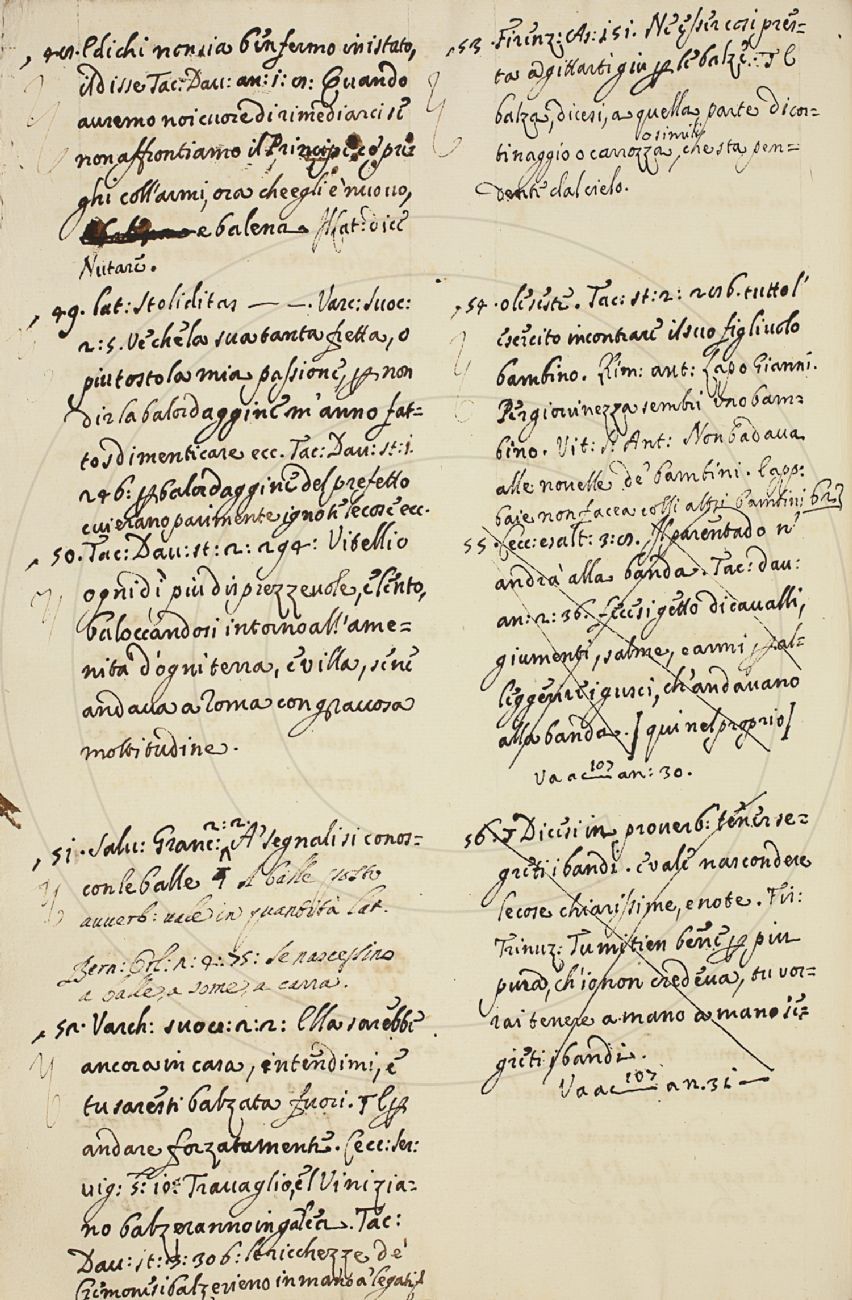 48. E dichi non sia ben fermo in istato,
il disse Tac: Dav: an: 1: 9. Quando
avremo noi cuore di rimediarci se
non affrontiamo il Principe, co prie
ghi coll'armi, ora che egli è nuovo,
e balena. Il lat: dice
Nutare.
49. lat: stoliditas — —. Varc: suoc:
2: 5. Ve che la sua tanta fretta, o
piu tosto la mia passione, p non
dir la balordaggine m'anno fat=
to sdimenticare ecc. Tac: Dav: st: 1.
246: p balordaggine del prefetto
cui erano parimente ignoti le cose ecc.
50. Tac: Dav: st: 2: 294: Vitellio
ogni dì piu disprezzevole, e lento,
baloccandosi intorno all'ame=
nità d'ogni terra, e villa, sene
andava a Roma con gravosa
moltitudine.
51. Salv: Granc: 2: 2. A' segnali si conos=
con le balle ¶ A balle posto
avverb: vale in quantità lat.
Bern: Orl: n: 4: 75: Se nascessino
a balle, a some, a carra.
52. Varch: suoc: 2: 2: Ella sarebbe
ancora in casa, intendimi, e
tu saresti balzata fuori. ¶ E p
andare forzatamente. Cecc: ser:
vig: 5: 10: Travaglio, e'l Vinizia=
no balzeranno in galea. Tac:
Dav: st: 3: 306: le ricchezze de'
Cremonesi balzerieno in mano a' legati
53. Firenz: As: 151. Ne esser cosi pres=
ta a gittarti giu p le balze. ¶ E
balza, dicesi, a quella parte di cor=
tinaggio o carrozza, o simili, che sta pen=
dente dal cielo.
54. olceste. Tac: st: 2: 296. tutto l'
esercito incontrare il suo figliuolo
bambino. Rim: ant: Lapo Gianni.
Per giovinezza sembri uno bam=
bino. Vit: S: Ant: Non badava
alle novelle de' bambini. E app:
baie non facea colli altri bambini 62
55. Cecc: esalt: 3: 9. Il parentado n'
andrà alla banda. Tac: dav:
an: 2: 36. fecesi getto di cavalli,
giumenti, salme, e armi, p al=
leggerire i gusci, ch'andavano
alla banda. [qui nel proprio]
Va a c 107 an: 30.
56. ¶ Dicesi in proverb: tener se=
greti i bandi. e vale nascondere
le cose chiarissime, e note. Fir:
Trinuz: Tu mi tien bene p piu
pura, ch'io non credeva, tu vor=
rai tenere a mano a mano se=
greti i bandi.
Va a c 107 an. 31 —